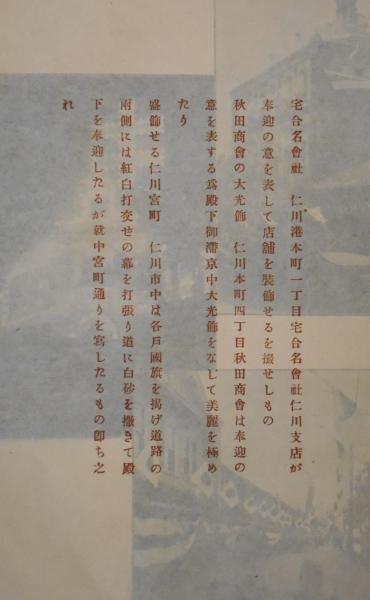 宅合名會社　仁川港本町一丁目宅合名會社仁川支店が
奉迎の意を表して店舗を裝飾せるを撮せしもの
秋田商會の大光飾　仁川本町四丁目秋田商會は奉迎の
意を表する爲殿下御滯京中大光飾をなして美麗を極め
たり
盛飾せる仁川宮町　仁川市中は各戸國旗を揭げ道路の
兩側には紅白打交せの幕を打張り道に白砂を撒きて殿
下を奉迎したるが就中宮町通りを寫したるもの卽ち之
れ